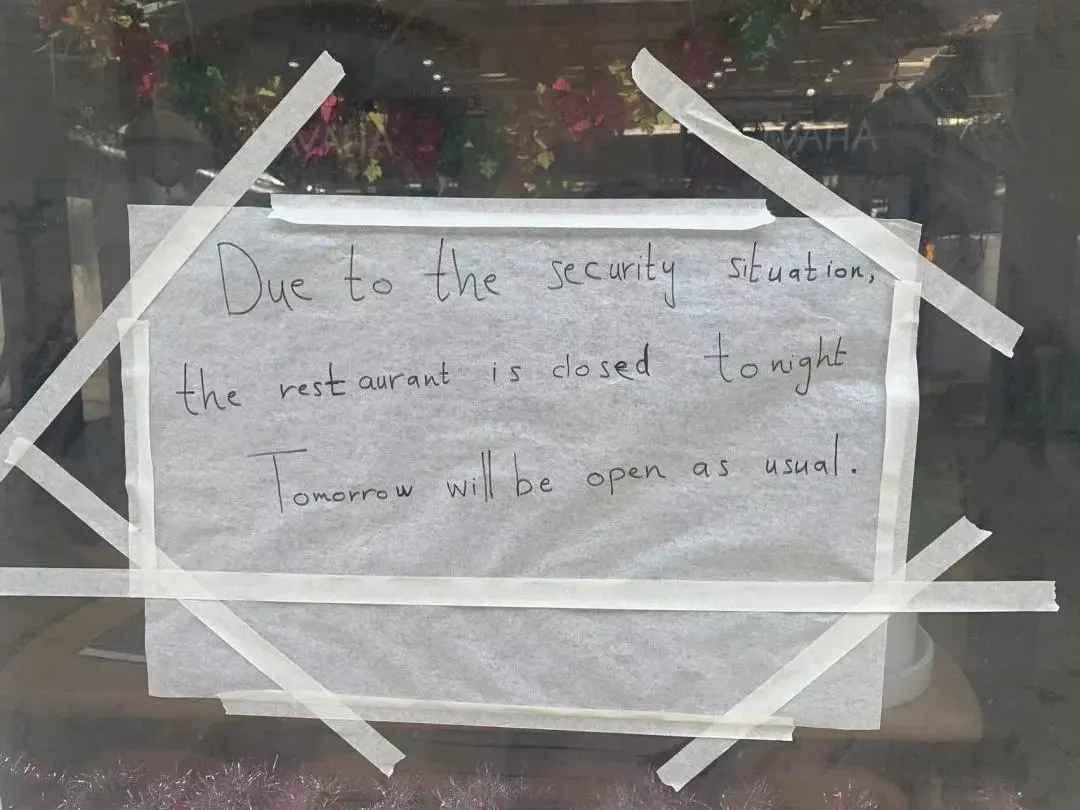 Due to the security situation,
the restaurant is closed tonight
Tomorrow will be open as usual.